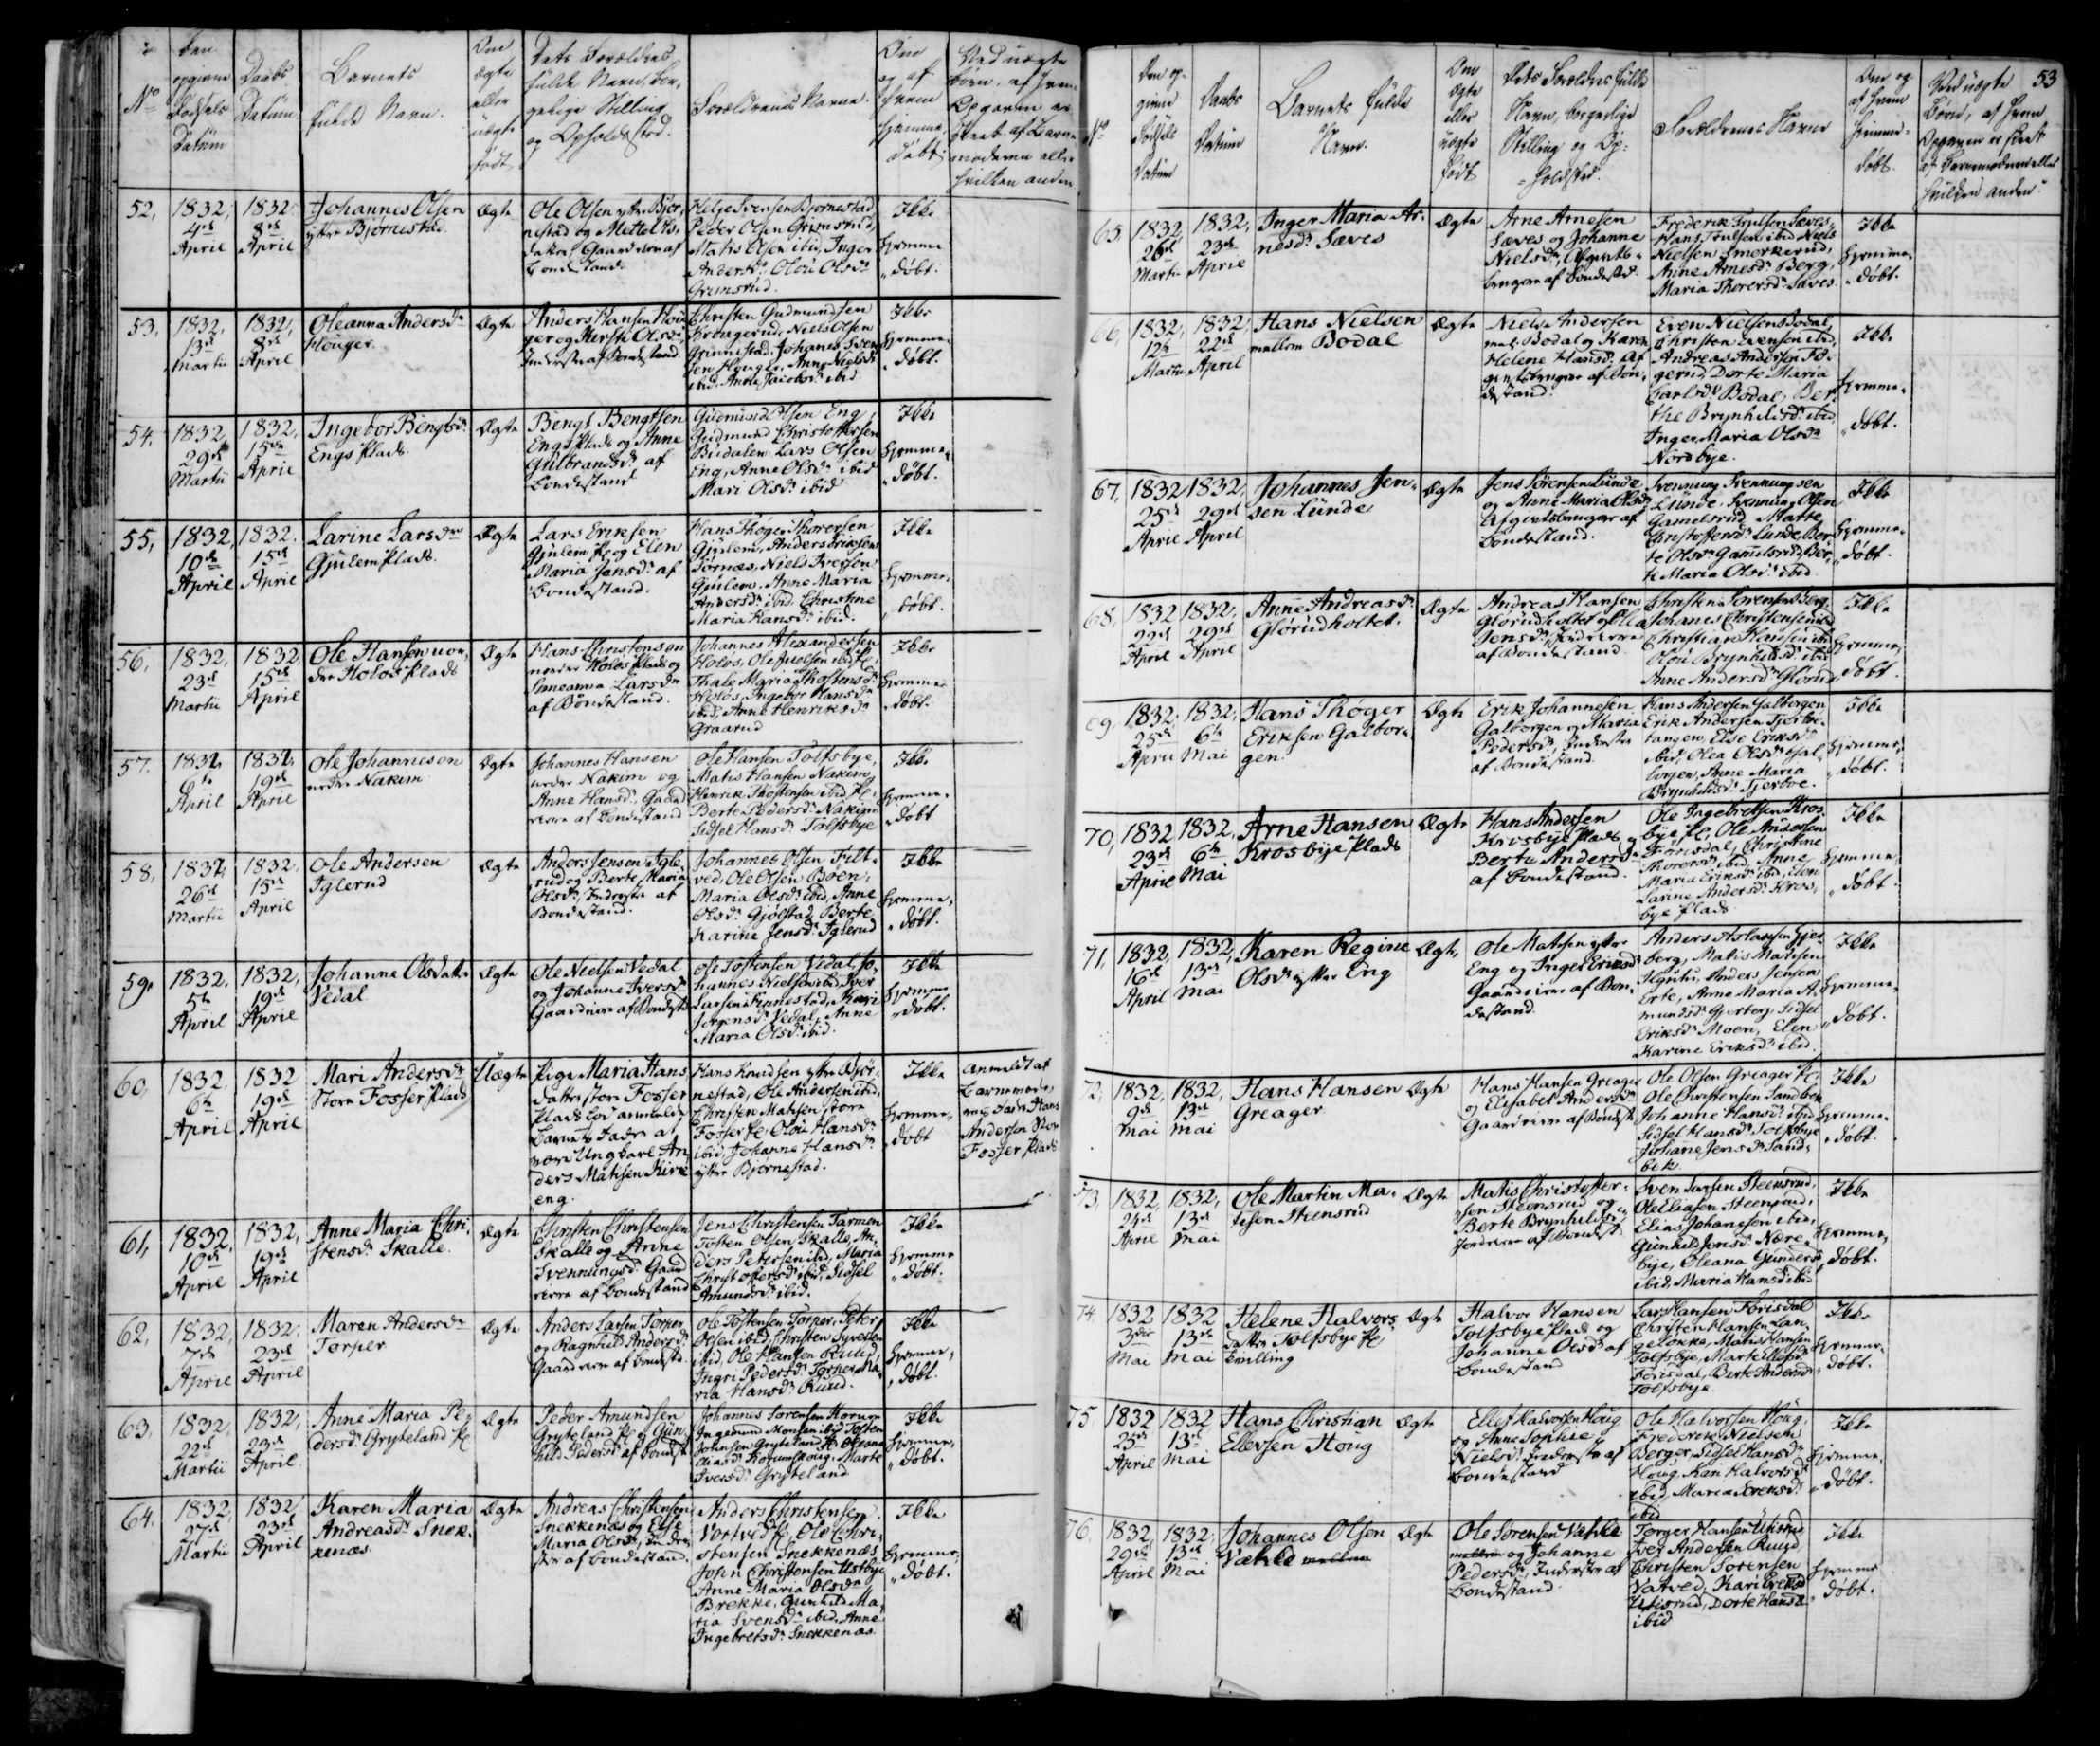 No
Den
opgivne
Fødsels
Datum
Daabs
Datum
Barnets
fulde Navn.
Om
ægte
eller
uægte
født
Dets Forældres
fulde Navn, bor-
gerlige Stilling
og Opholdssted.
Forældrenes Navne.
Om
og af
hvem
hjemme-
døbt
Ved uægte
Børn, af hvem
Opgaven er
skeet af Barne-
moderen eller
hvilken anden
52,
1832,
4de
April
1832.
8de
April
Johannes Olsen
yttre Bjørnestad.
Ægte
Ole Olsen yttre Bjør-
nestad og Mette Ols-
datter Gaardeiere af
Bondestand.
Helje Svensen Bjørnestad
Peder Olsen Grimsrud,
Matis Olsen ibid, Inger
Andersdr, Oloü Olsdr
Grimsrud.
Ikke
hjemme
døbt.
53.
1832,
13de
Martii
1832,
8de
April
Oleanna Andersdr
Houger.
Ægte
Anders Hansen Hou-
ger og Kirsti Olsdr,
Inderster af Bondestand
Christen Gudmundsen
Krougerud, Niels Olsen
Grinnestad, Johanes Sven-
sen Houger, Anne Nielsdr
ibid, Anne Jacobsdr ibid
Ikke
hjemme-
døbt.
54.
1832,
29de
Martii
1832,
15de
April
Ingebor Bengtsdr
Engs Plads
Ægte
Bengt Bengtsen
Engs Plads og Anne
Gulbrandsdr af
Bondestand
Gudmund Olsen Eng,
Gudmund Christoffersen
Budalen Lars Olsen
Eng, Anne Olsdr ibid
Mari Olsdr ibid
Ikke
hjemme-
døbt.
55,
1832,
10de
April
1832.
15de
April
Larine Larsdr
Gjulem Plads.
Ægte
Lars Eriksen
Gjulem Pl og Elen
Maria Jensdr af
Bondestand.
Hans Thøger Thorersen
Gjulem, Anders Eriksen
Tørnæs, Niels Iversen
Gjulem, Anne Maria
Andersdr ibid Christine
Maria Hansdr ibid.
Ikke
hjemme-
døbt.
56,
1832,
23de
Martii
1832
15de
April
Ole Hansen nor-
dre Holøs Plads
Ægte
Hans Christensen
nordre Holøs Plads og
Anneanna Larsdr
af Bondestand.
Johannes Alexandersen
Holøs, Ole Juelsen ibid Pl,
Thale Maria Thostensdr
Holøs, Ingebor Hansdr
ibid, Anne Henriksdr
Graarud
Ikke
hjemme
døbt.
57.
1832,
6te
April
1832.
19de
April
Ole Johannesen
nedre Nakim
Ægte
Johannes Hansen
nedre Nakim og
Anne Hansdr, Gaard-
eiere af Bondestand
Ole Hansen Tolfsbye,
Matis Hansen Nakim,
Henrik Thostensen ibid Pl,
Berte Pedersdr Nakim
Sidsel Hansdr Tolfsbye
Ikke
hjemme-
døbt
58,
1832,
26de
Martii
1832
15de
April
Ole Andersen
Iglerud
Ægte
Anders Jensen Igle-
rud og Berte Maria
Olsdr, Inderster af
Bondestand.
Johannes Olsen Tilt-
ved, Ole Olsen Boen,
Maria Olsdr ibid, Anne
Olsdr Gjølstad, Berte
Karine Jensdr Iglerud
Ikke
hjemme-
døbt.
59,
1832.
5te
April
1832,
19de
April
Johanne Olsdatter
Vedal
Ægte
Ole Nielsen Vedal
og Johanne Iversdr
Gaardeiere af Bondestd
Ole Tostensen Vedal, Jo-
hannes Nielsen ibid Iver
Larsen Finnestad, Kari
Jørgensdr Vedal, Anne
Maria Olsdr ibid.
Ikke
hjemme
døbt.
60,
1832.
6te
April
1832
19de
April
Mari Andersdr
Store Fosser Plads
Uægte
Pige Maria Hans-
datter store Fosser
Plads lod anmelde
Barnets Fader at
være Ungkarl An-
ders Matisen Kirke
eng.
Hans Knudsen yttre Bjør-
nestad, Ole Andersen ibid,
Christen Matisen store
Fosser Pl, Oloü Hansdr
ibid, Johanne Hansdr
yttre Bjørnestad.
Ikke
hjemme-
døbt
Anmeldt af
Barnemode-
rens Fader Hans
Andersen Store
Fosser Plads
61,
1832.
10de
April
1832,
19de
April
Anne Maria Chri-
stensdr Skalle.
Ægte
Christen Christensen
Skalle og Anne
Svenningsdr Gaard
eiere af Bondestand
Jens Christensen Tarmen
Tosten Olsen Skalle, An-
ders Petersen ibid, Maria
Christoffersdr ibid, Sidsel
Amundsdr ibid.
Ikke
hjemme
døbt.
62,
1832,
7de
April
1832.
23de
April
Maren Andersdr
Torper
Ægte
Anders Larsen Torper
og Ragnhild Andersdr,
Gaardeiere af Bondestd.
Ole Tostensen Torper, Peter
Olsen ibid, Christen Syversen
ibid, Ole Hansen Ruud,
Ingri Pedersdr Torper, Ma-
ria Hansdr Ruud.
Ikke
hjemme-
døbt.
63,
1832.
22de
Martii
1832.
23de
April.
Anne Maria Pe-
dersdr Gryteland Pl
Ægte
Peder Amundsen
Gryteland Pl og Gun-
hild Pedersdr af Bondest
Johannes Sørensen Hornes
Ingemund Monsen ibid Tosten
Johnsen Gryteland Pl, Oleana
Marte
Iversdr Gryteland
Ikke
hjemme-
døbt.
64.
1832.
27de
Martii
1832
23de
April
Karen Maria
Andreasdr Snek-
kenæs.
Ægte
Andreas Christensen
Snekkenæs og Else
Maria Olsdr, Inder-
ster af Bondestand.
Anders Christensen
Vortved Pl, Ole Chri-
stensen Snekkenæs
John Christensen Ustbye
Anne Maria Olsdr
Brekke, Gunhild Ma-
ria Svensdr ibid, Anne
Ingebretsdr Snekkenæs
Ikke
hjemme-
døbt.
53
No
Den op-
givne
Fødsels
Datum
Daabs
Datum
Barnets fulde
Navn.
Om
ægte
eller
uægte
født
Dets Forældres fulde
Navn, borgerlige
Stilling og Op-
holdsted.
Forældrenes Navne
Om og
af hvem
hjemme-
døbt.
Ved uægte
Børn, af hvem
Opgaven er skeet
af Barnemoderen eller
hvilken anden.
65
1832
26de
Martii
1832,
23de
April
Inger Maria Ar-
nesdr Sæves
Ægte
Arne Arnesen
Sæves og Johanne
Nielsdr, Afgivts-
brugere af Bondestd.
Frederik Trulsen Sæves,
Hans Trulsen ibid Niels
Nielsen Smerkerud,
Anne Arnesdr Berg,
Maria Thorersdr Sæves
Ikke
hjemme-
døbt.
66,
1832,
12te
Martii
1832,
22de
April
Hans Nielsen
mellem Bodal
Ægte
Niels Andersen
mel. Bodal og Karen
Helene Hansdr Af-
givtsbrugere af Bon-
destand.
Even Nielsen Bodal,
Christen Evensen ibid,
Andreas Andersen Fos-
gerud, Dorte Maria
Carlsdr Bodal, Ber-
the Brynhildsdr ibid
Inger Maria Olsdr
Nordbye.
Ikke
hjemme-
døbt.
67,
1832
25de
April
1832,
29de
April
Johannes Jen-
sen Lunde
Ægte
Jens Sørensen Lunde
og Anne Maria Olsdr,
Afgivtsbrugere af
Bondestand.
Svenning Svenningsen
Lunde, Svenning Olsen
Gamelsrud Marte
Christoffersdr Lunde, Ber-
te Olsdr Gamelsrud, Ber-
te Maria Olsdr ibid.
Ikke
hjemme-
døbt.
68,
1832
22de
April
1832,
29de
April
Anne Andreasdr
Glørudholtet.
Ægte
Andreas Hansen
Glørudholtet og Olea
Jensdr, Jordeiere
af Bondestand.
Christen Sørensen Berg,
Johanes Christensen ibid
Christian Hansen ibid
Oloü Brynhildsdr ibid
Anne Andersdr Glørud
Ikke
hjemme-
døbt.
69.
1832,
25de
April
1832,
6te
Mai
Hans Thøger
Eriksen Galbor-
gen
Ægte
Erik Johannesen
Galborgen og Maria
Pedersdr, Inderster
af Bondestand.
Hans Andersen Galborgen
Erik Andersen Tjerbo-
tangen, Else Eriksdr
ibid, Olea Olsdr Gal-
borgen, Anne Maria
Brynhildsdr Tjerboe.
Ikke
hjemme-
døbt.
70,
1832
23de
April
1832,
6te
Mai
Arne Hansen
Krosbye Plads
Ægte
Hans Andersen
Krosbye Plads og
Berte Andersdr
af Bondestand.
Ole Ingebretsen Kros-
bye Pl, Ole Andersen
Førrisdal, Christine
Thorersdr ibid, Anne
Maria Eriksdr ibid, Elen
Larine Andersdr Kros-
bye Plads
Ikke
hjemme-
døbt.
71,
1832,
16de
April
1832,
13de
Mai
Karen Regine
Olsdr yttre Eng
Ægte,
Ole Matisen yttre
Eng og Inger Eriksdr
Gaardeiere af Bon-
destand.
Anders Aslaksen Gjer-
berg, Matis Matisen
Anders Jensen
Erte, Anne Maria A-
mundsdr Gjerberg, Sidsel
Eriksdr Moen, Elen
Karine Eriksdr ibid.
Ikke
hjemme-
døbt.
72,
1832,
9de
Mai
1832,
13de
Mai
Hans Hansen
Greager
Ægte
Hans Hansen Greager
og Elisabet Andersdr
Gaardeiere af Bondest.
Ole Olsen Greager Pl,
Ole Christensen Sandbek
Johanne Hansdr ibid
Sidsel Hansdr Tolfsbye
Johane Jensdr Sand-
bek.
Ikke
hjemme-
døbt.
73,
1832,
24de
April
1832,
13de
Mai
Ole Martin Ma-
tisen Stensrud
Ægte
Matis Christoffer-
sen Steensrud og
Berte Brynhildsdr
Jordeiere af Bondest.
Sven Larsen Steensrud,
Ole Eliasen Steensrud,
Elias Johanesen ibid,
Gunhild Jensdr Nære-
bye, Oleana Gundersdr
ibid, Maria Hansdr ibid
Ikke
hjemme-
døbt.
74.
1832
3die
Mai
1832
13de
Mai
Helene Halvors
datter Tolfsbye Pl
Tvilling
Ægt
Halvor Hansen
Tolfsbye Plads og
Johanne Olsdr af
Bondestand
Lars Hansen Førisdal
Christen Hansen Lan-
geløkke, Matis Hansen
Tolfsbye, Marte Olsdr
Førisdal, Berte Andersdr
Tolfsbye.
Ikke
hjemme-
døbt.
75.
1832
25de
April
1832
13de
Mai
Hans Christian
Ellevsen Houg
Ægte
Ellef Halvorsen Houg
og Anne Sophie
Nielsdr Inderster af
Bondestand
Ole Halvorsen Houg,
Frederik Nielsen
Berger, Sidsel Hansdr
Houg, Kari Halvorsdr
ibid, Maria Larsdr
ibid
Ikke
hjemme-
døbt.
76.
1832
29de
April
1832,
13de
Mai
Johannes Olsen
Væhle mellem
Ægte
Ole Sørensen Væhle
mellem og Johanne
Pedersdr, Inderster af
Bondestand.
Torger Hansen Utisrud
Iver Andersen Ruud
Christen Sørensen
Vatved, Kari Eriksdr
Utisrud, Dorte Hansdr
ibid
Ikke
hjemme
døbt.